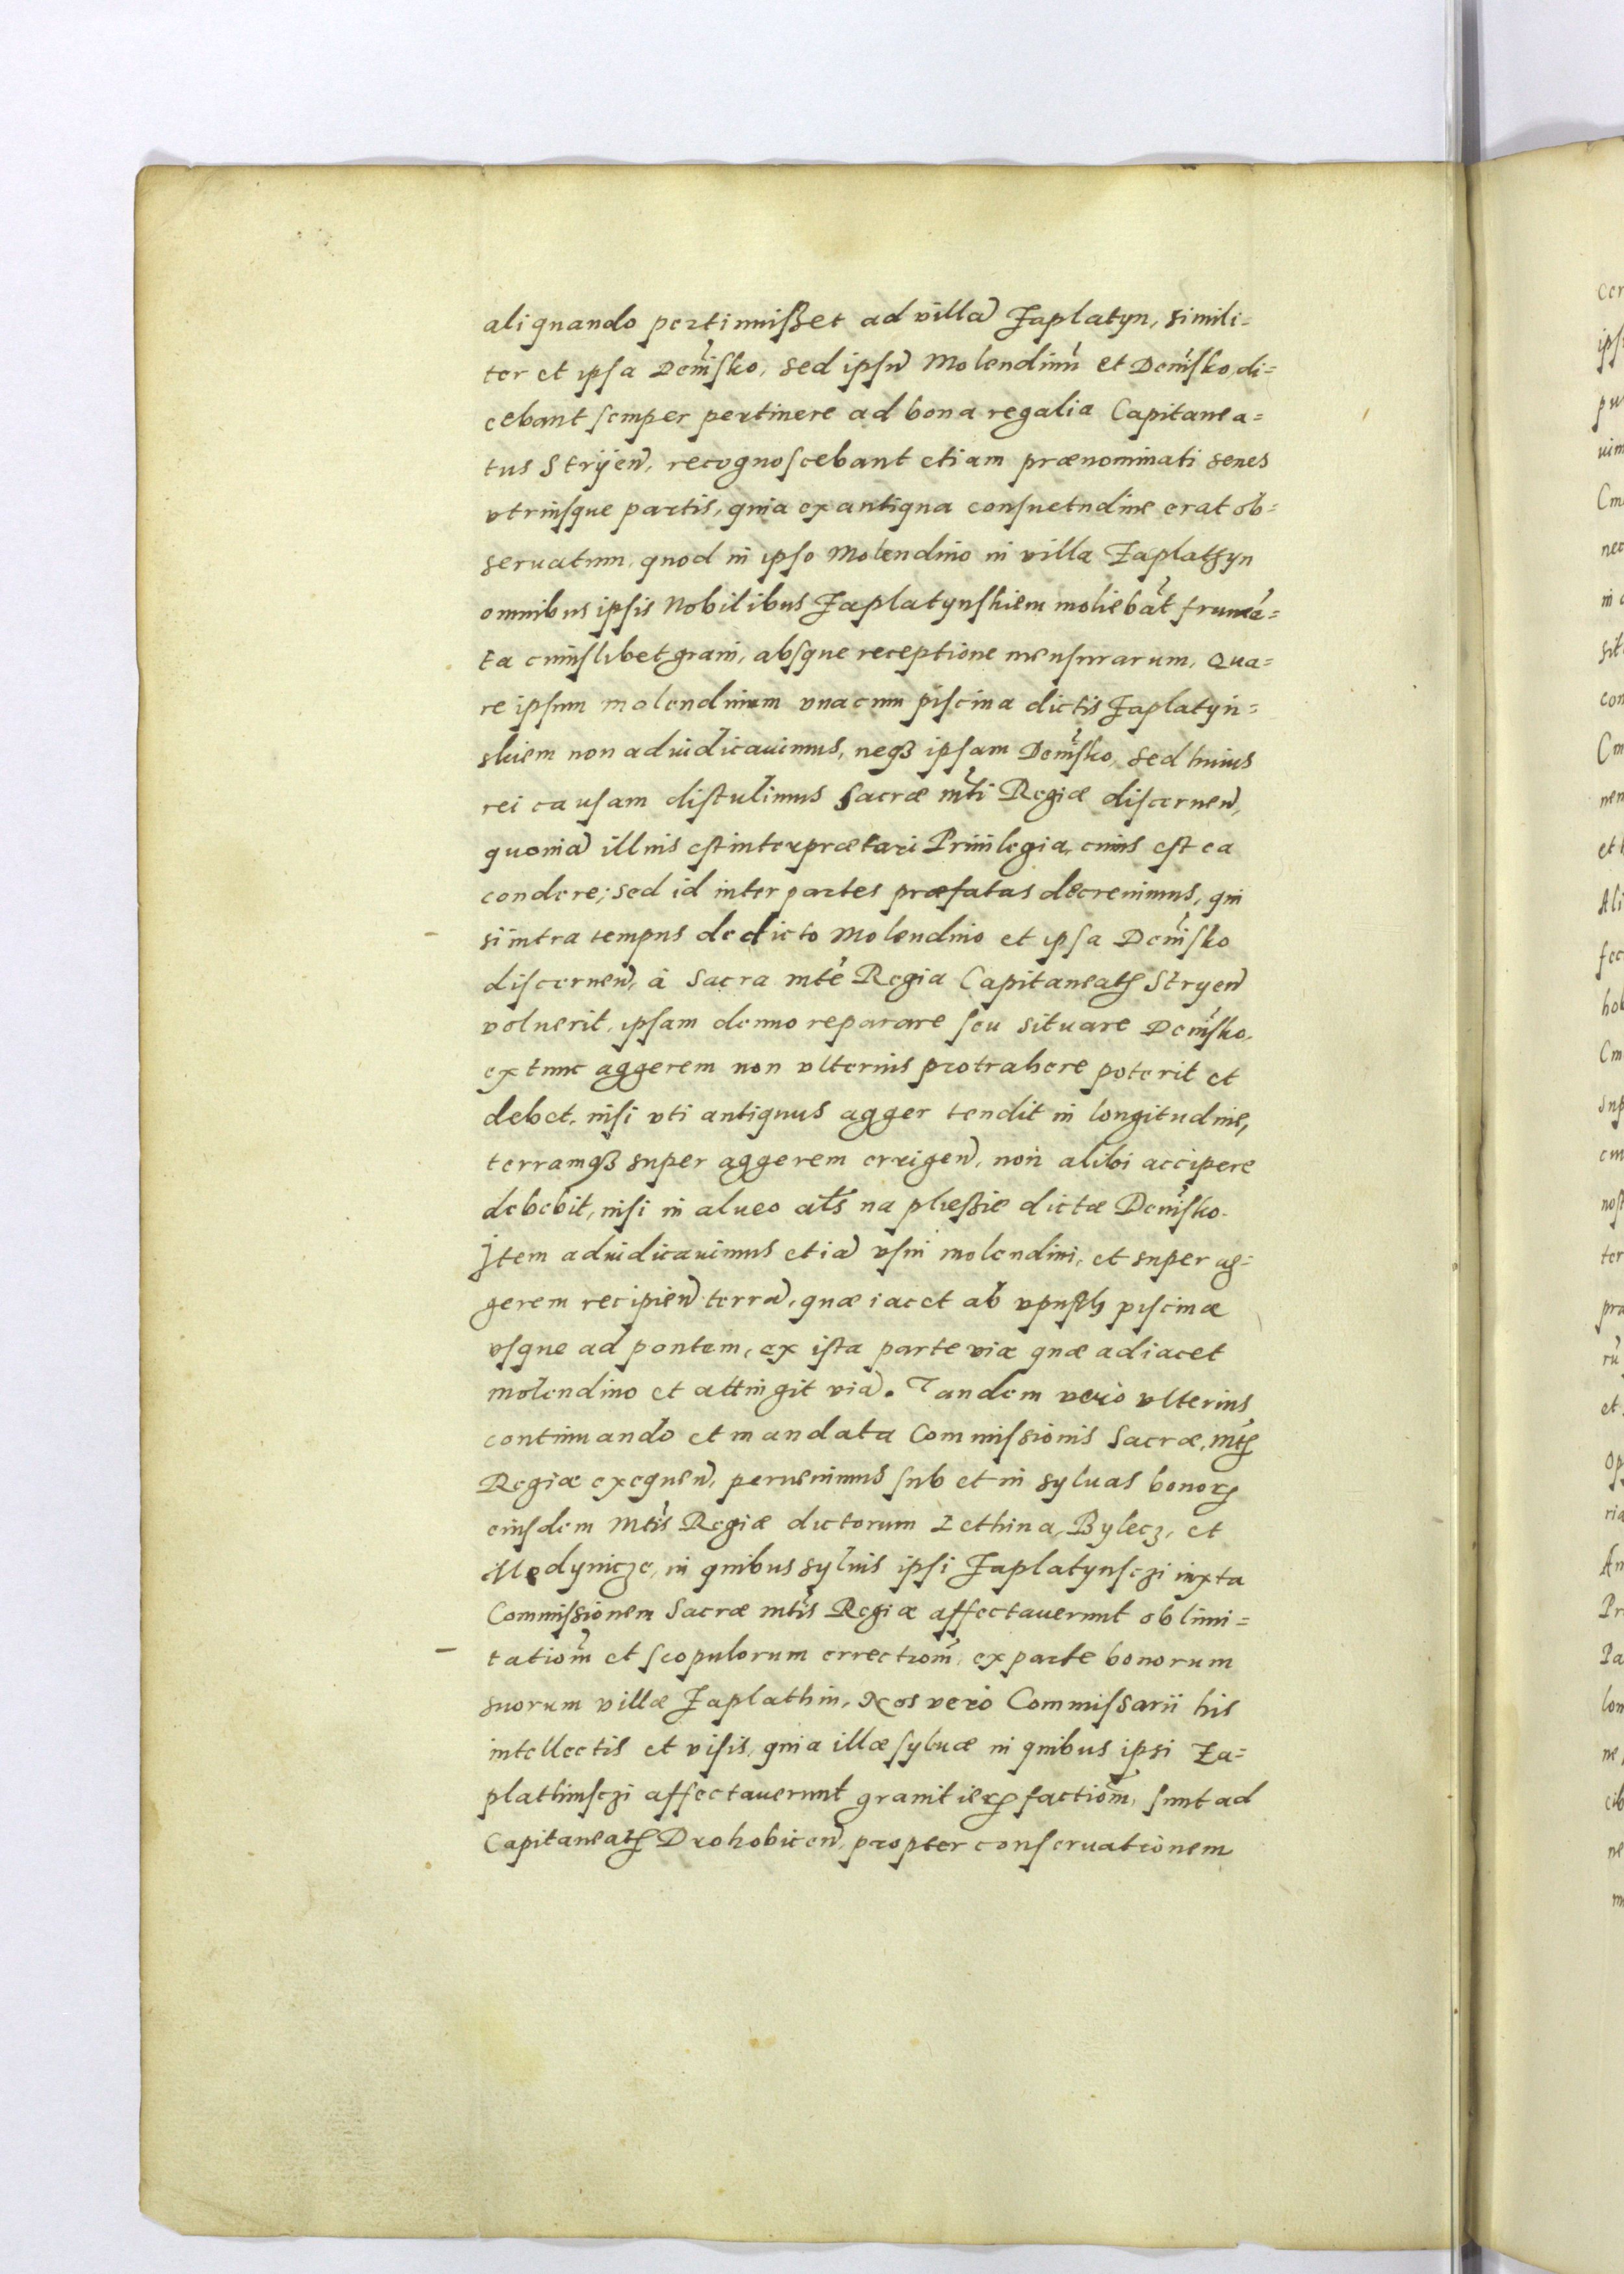 aliquando pertinuißet ad villã Zaplatyn, simili=
ter et ipsa Demsko, sed ipsũ Molendinũ et Demsko, di=
cebant semper pertinere ad bona regalia Capitanea=
tus Stryień, recognoscebant etiam prænominati senes
vtriusque partis, quia ex antiqua consuetudine erat ob=
seruatum, quod in ipso Molendino in villa Zaplatyn
omnibus ipsis Nobilibus Zaplatynskiem moliebãt frumẽ=
ta cuiuslibet grani, absque receptione mensurarum, Qua=
re ipsum molendinum vnacum piscina dictis Zaplatyn=
skiem non adiudicauimus, neqȝ ipsam Demsko, sed huius
rei causam distulimus Sacræ mti Regiæ discernen,
quoniã illius est interprætari Priuilegia, cuius est ea
condere; sed id inter partes præfatas decreuimus, qui
si intra tempus de dicto Molendino et ipsa Demsko
discernen, à Sacra mte Regia Capitaneatꝰ Stryen
voluerit, ipsam denuo reparare seu situare Demsko,
ex tunc aggerem non vlterius protrahere poterit et
debet, nisi vti antiquus agger tendit in longitudine,
terramqȝ super aggerem errigen, non alibi accipere
debebit, nisi in alueo als na pleßie dictæ Demsko.
Item adiudicauimus etiã vsui molendini, et super ag=
gerem recipien terrã, quæ iacet ab vpusth piscinæ
vsque ad pontem, ex ista parte viæ quæ adiacet
molendino et attingit viã. Tandem vero vlterius
continuando et mandata Commissionis Sacræ, mtꝭ
Regiæ exequen, peruenimus sub et in syluas bonorꝝ
eiusdem Mtis Regiæ dictorum Lethina, Bylecz, et
Medynicze, in quibus syluis ipsi Zaplatynsczi iuxta
Commißionem Sacræ mtis Regiæ affectauerunt oblimi=
tationẽ et scopulorum errectionẽ, ex parte bonorum
suorum villæ Zaplathin, Nos vero Commissarii his
intellectis et visis, quia illæ syluæ in quibus ipsi Za=
plathinsczi affectauerunt granitierꝝ factionẽ, sunt ad
Capitaneatꝰ Drohobicen, propter conseruationem